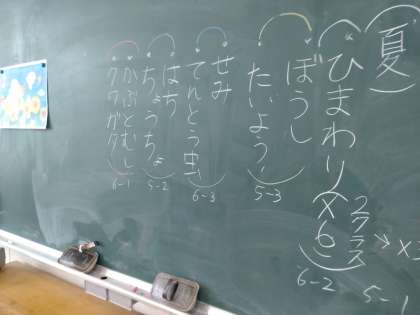 夏
ひまわり(×6)
2クラス
6-2
5-1
ぼうし
たいよう
5-3
せみ
てんとう虫
6-3
はち
ちょうちょ
5-2
かぶとむし
クワガタ
6-1